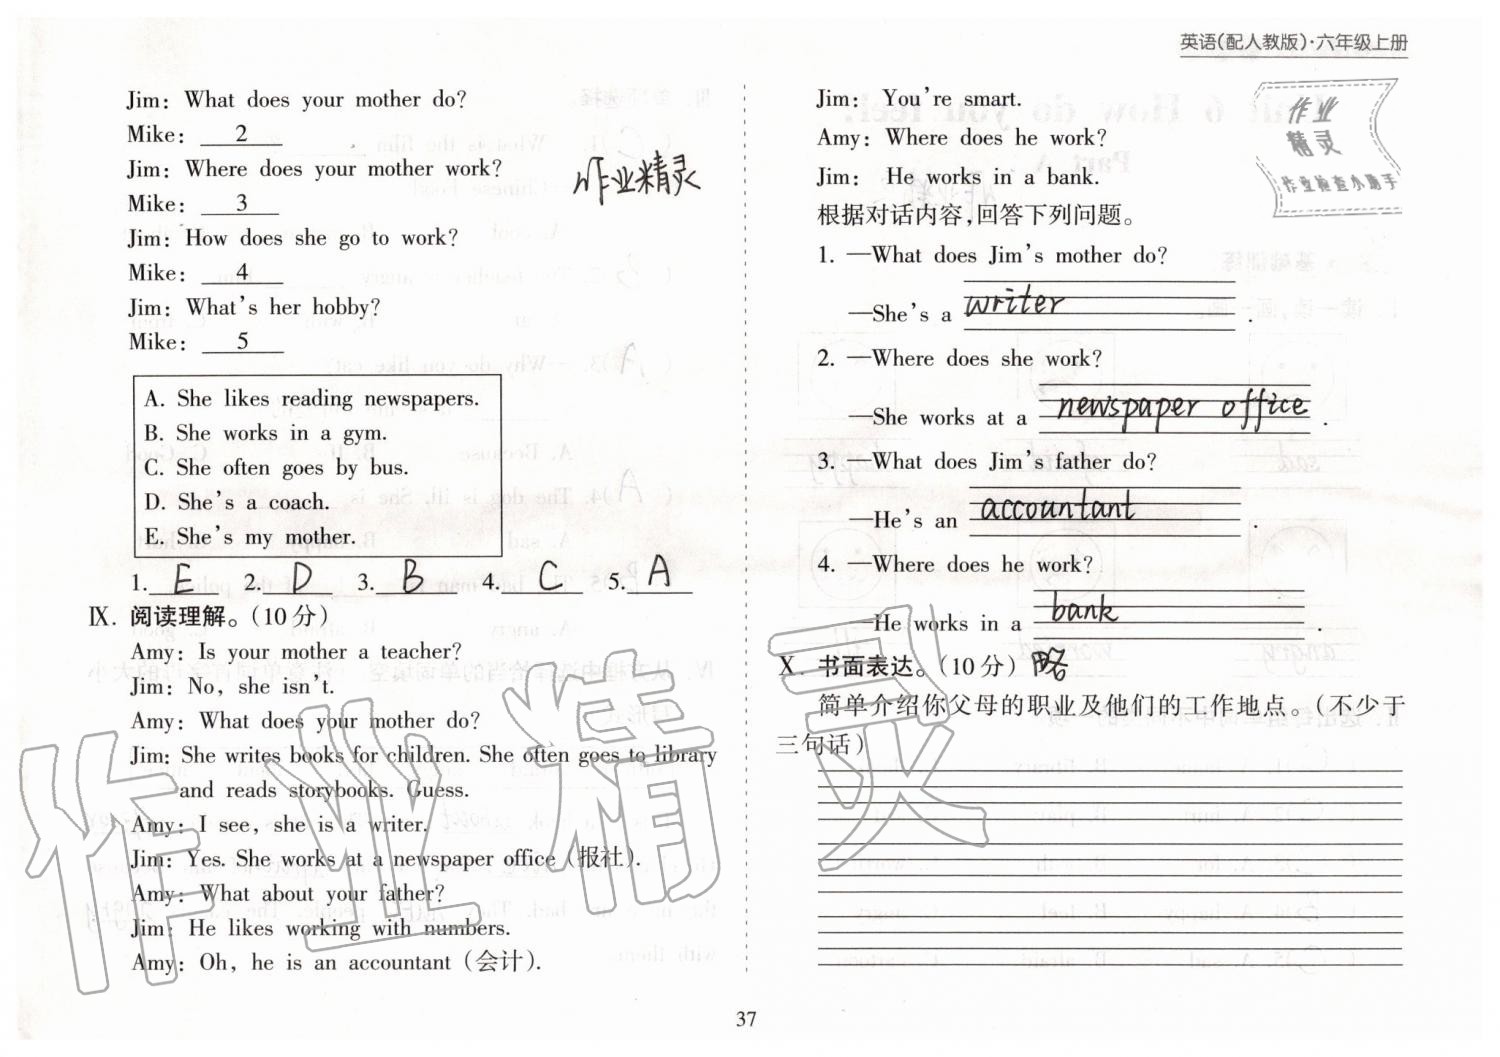 英语(配人教版)·六年级上册
Jim: What does your mother do?
Mike: 2
Jim: Where does your mother work?
Mike: 3
Jim: How does she go to work?
Mike: 4
Jim: What's her hobby?
Mike: 5
A. She likes reading newspapers.
B. She works in a gym.
C. She often goes by bus.
D. She's a coach.
E. She's my mother.
1. E 2. D 3. B 4. C 5. A
Ⅸ. 阅读理解。(10分)
Amy: Is your mother a teacher?
Jim: No, she isn't.
Amy: What does your mother do?
Jim: She writes books for children. She often goes to library
and reads storybooks. Guess.
Amy: I see, she is a writer.
Jim: Yes. She works at a newspaper office (报社).
Amy: What about your father?
Jim: He likes working with numbers.
Amy: Oh, he is an accountant (会计).
作业精灵
作业精灵
Jim: You're smart.
Amy: Where does he work?
Jim: He works in a bank.
作业
精灵
作业检查小助手
根据对话内容,回答下列问题。
1. —What does Jim's mother do?
—She's a writer.
2. —Where does she work?
—She works at a newspaper office.
3. —What does Jim's father do?
—He's an accountant.
4. —Where does he work?
—He works in a bank.
Ⅹ. 书面表达。(10分) 略
简单介绍你父母的职业及他们的工作地点。(不少于
三句话)
37